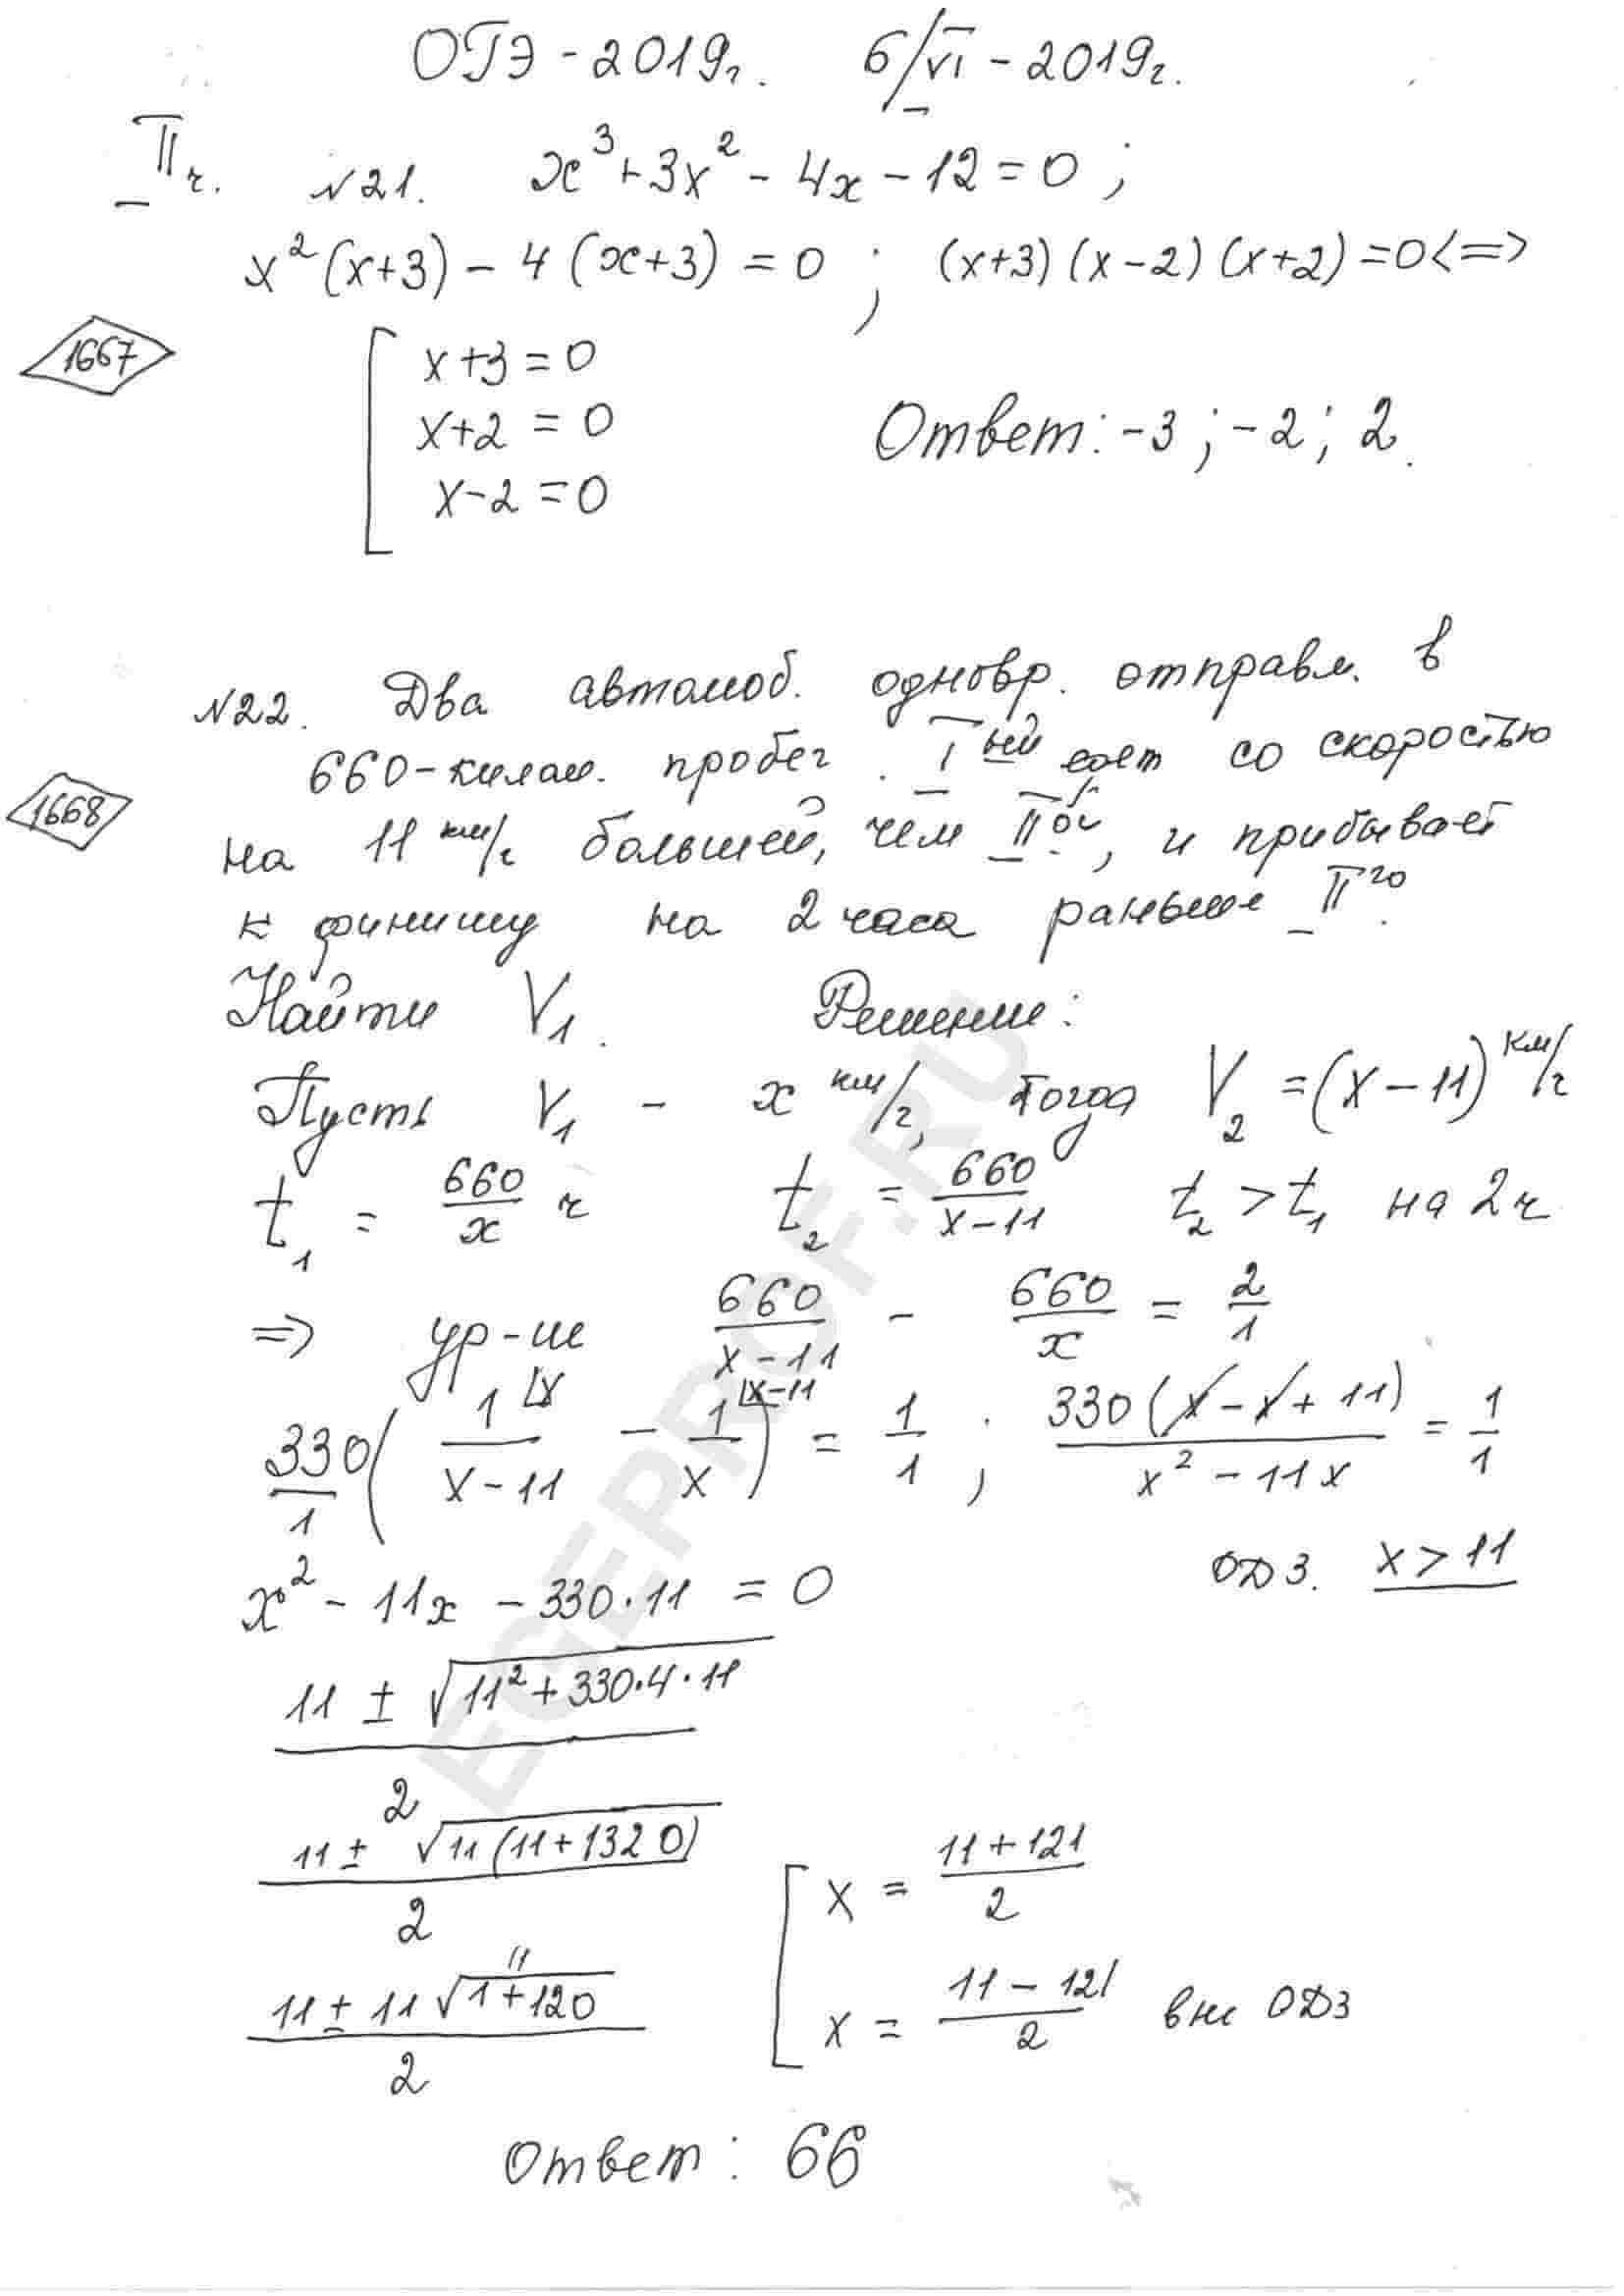 ОГЭ - 2019г. 6/VI - 2019г.
II ч. №21. x³ + 3x² - 4x - 12 = 0 ;
x² (x+3) - 4 (x+3) = 0 ; (x+3) (x-2) (x+2) = 0 <=>
1667
x + 3 = 0
x + 2 = 0
x - 2 = 0
Ответ: -3 ; -2 ; 2.
№22. Два автомоб. одновр. отправл. в
660-килом. пробег. I ый едет со скоростью
1668
на 11 км/ч большей, чем II ой, и прибывает
к финишу на 2 часа раньше II го.
Найти V₁. Решение:
Пусть V₁ - x км/ч, тогда V₂ = (x - 11) км/ч
t₁ = 660/x ч t₂ = 660/(x-11) t₂ > t₁ на 2 ч
=> ур-ие 660/(x-11) - 660/x = 2/1
330/1 ( 1/(x-11) ⌊x - 1/x ⌊x-11 ) = 1/1 ; 330 (x - x + 11)/(x² - 11x) = 1/1
ОДЗ. x > 11
x² - 11x - 330·11 = 0
(11 ± √(11² + 330·4·11))/2
(11 ± √(11 (11 + 1320)))/2
(11 ± 11 √(1 + 120))/2
11
x = (11 + 121)/2
x = (11 - 121)/2 вне ОДЗ
Ответ: 66
EGEPROF.RU